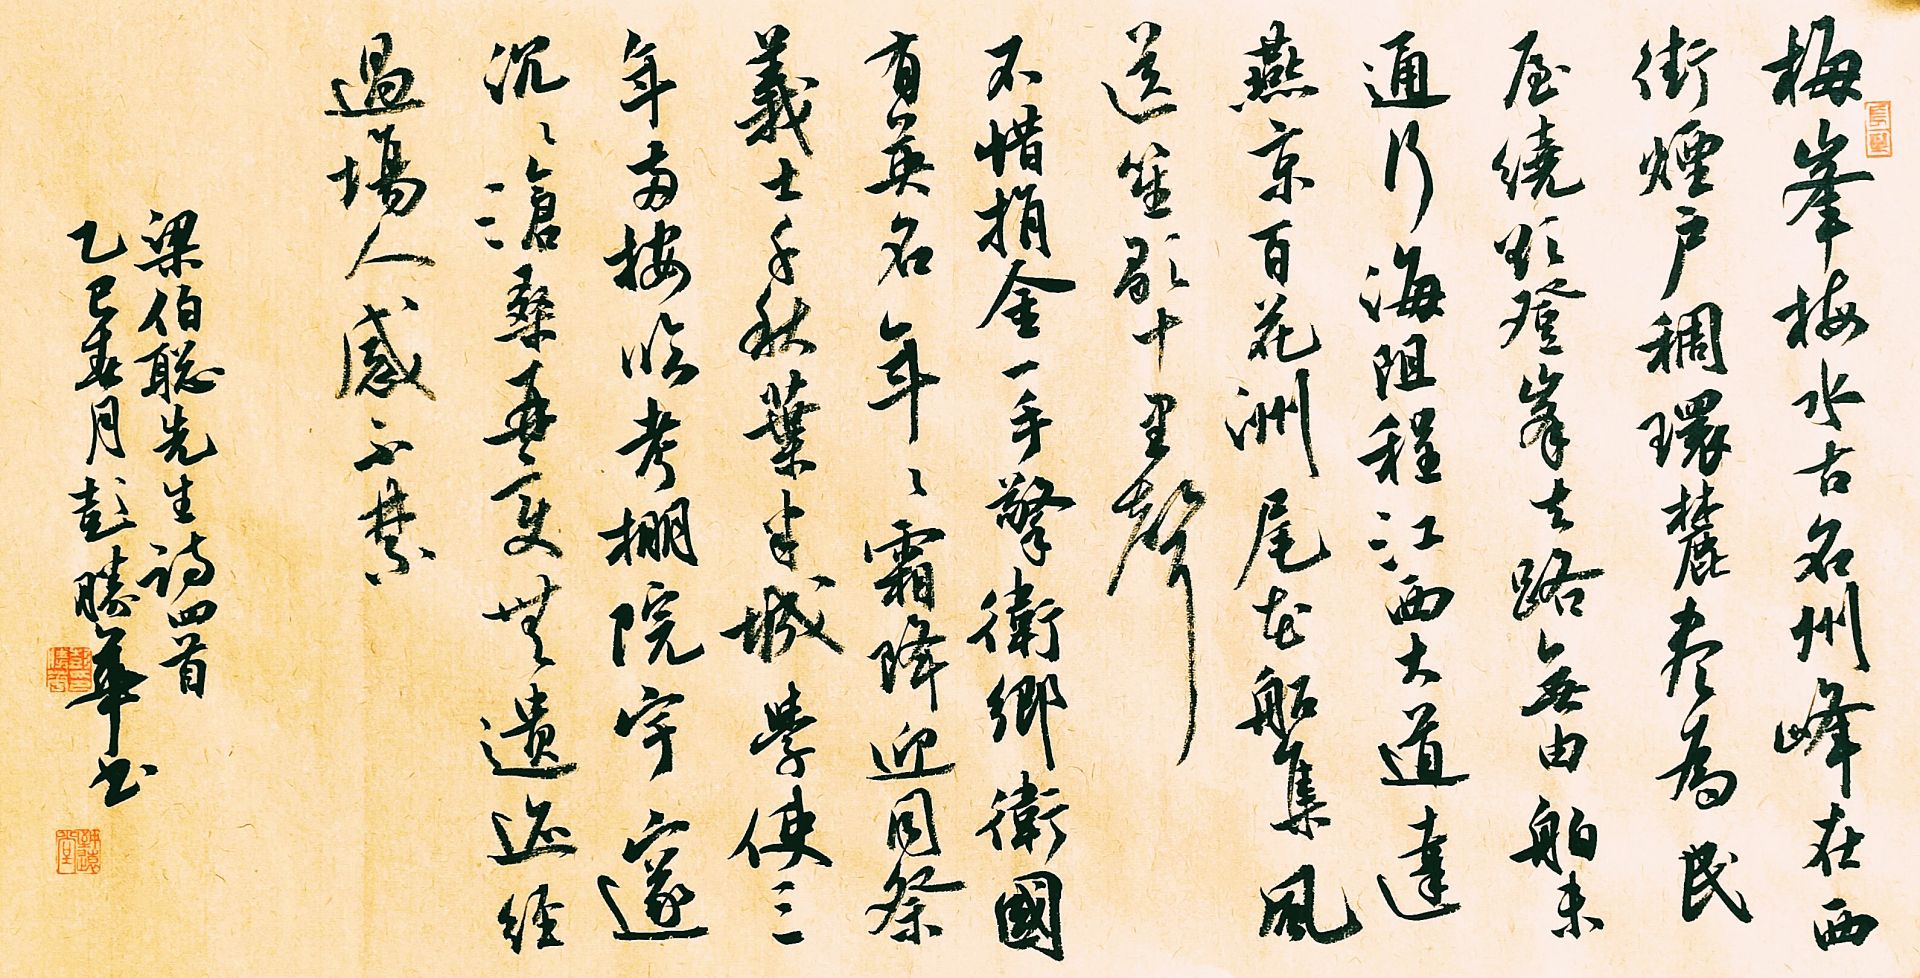 梅峯梅水古名州峰在西
街煙戶稠環麓盡為民
屋繞欲登峯去路無由舶未
通行海阻程江西大道達
燕京百花洲尾花船集風
送笙歌十里聲
不惜捐金一手擎衛鄉衛國
有英名年〻霜降迎同祭
義士千秋葉半城學使三
年兩按臨考棚院宇邃
沉〻滄桑再變無遺迹經
過場人感不禁
梁伯聪先生詩四首
乙巳春月彭勝華書